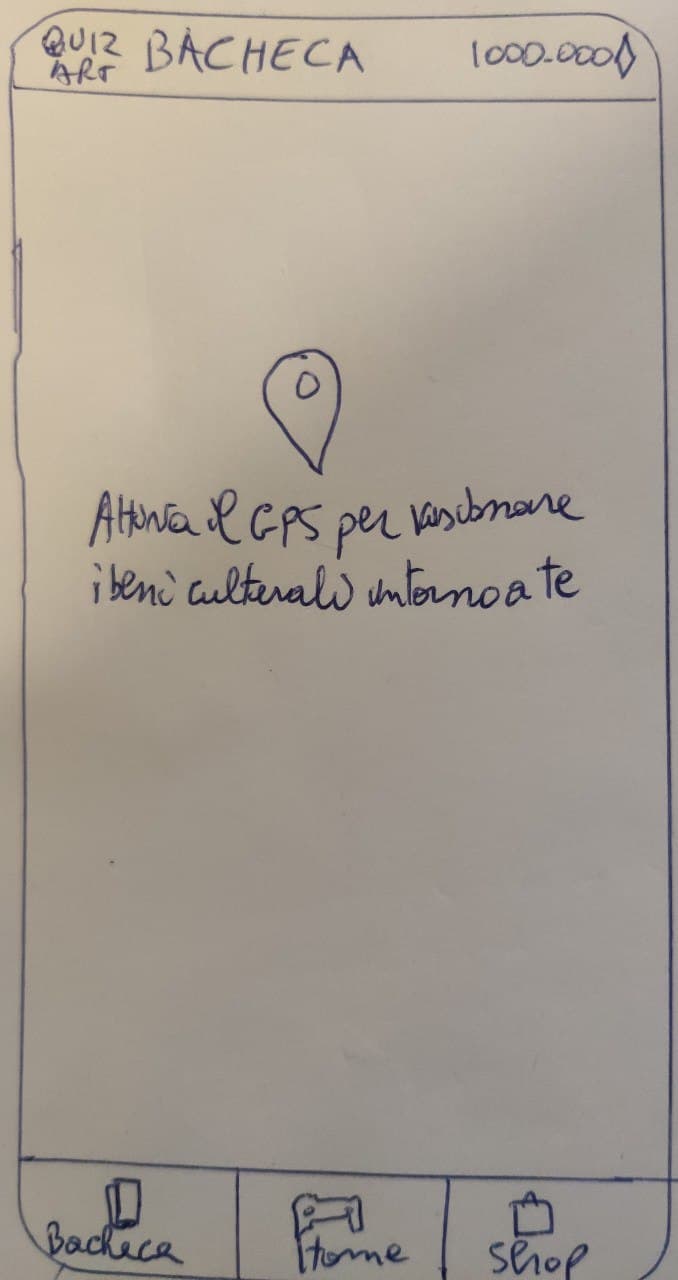 QUIZ ART BACHECA 1000.000
Attiva il GPS per visionare
i beni culturali intorno a te
Bacheca Home Shop